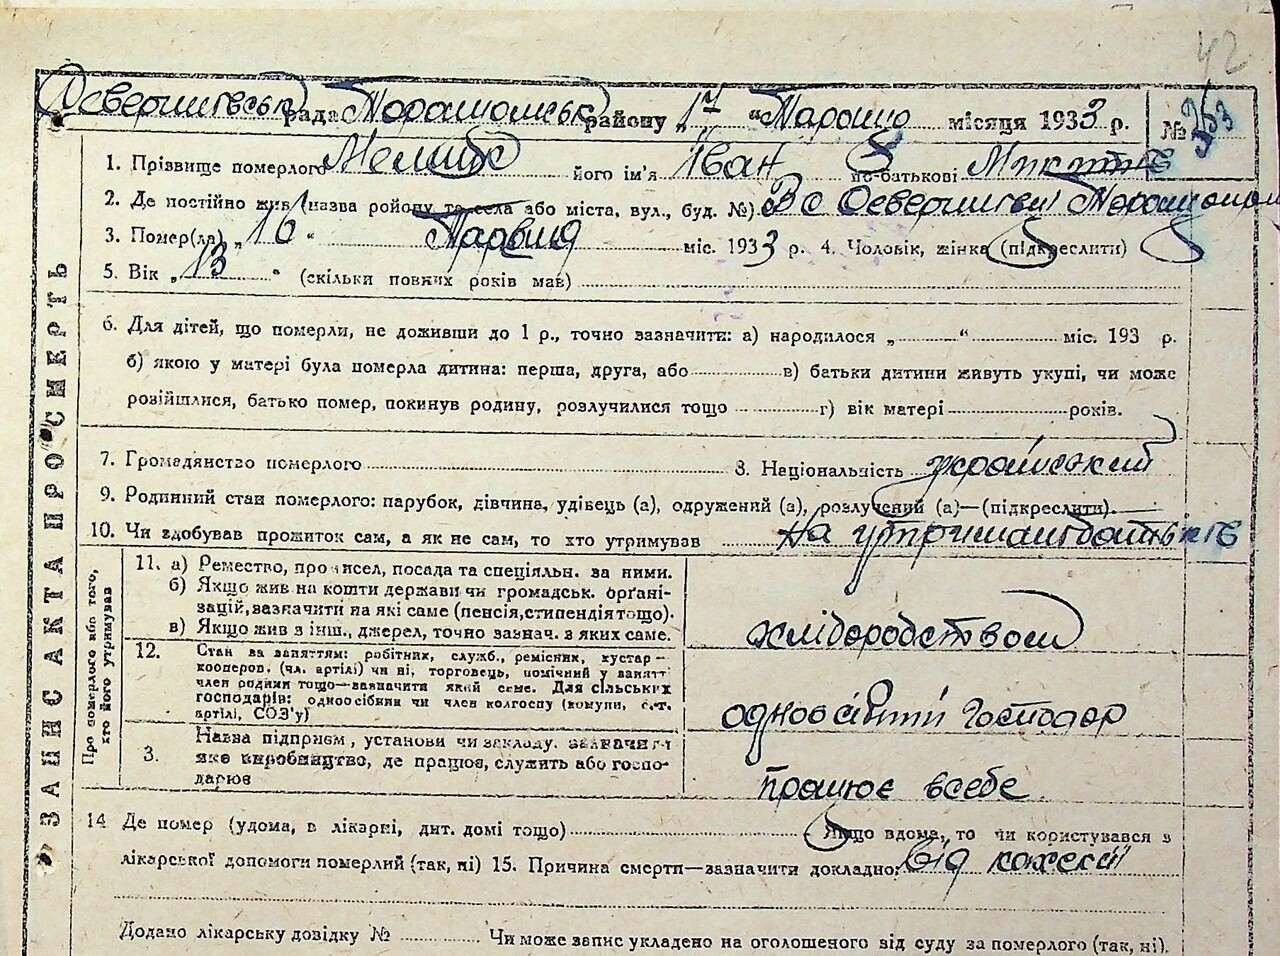 42
рада району „17 “ місяця 1933 р. №
1. Прізвище померлого його ім'я Іван по-батькові
2. Де постійно жив (назва району та села або міста, вул., буд. №) В с
3. Помер(ла) „16“ міс. 1933 р. 4. Чоловік, жінка (підкреслити)
5. Вік „13“ (скільки повних років мав)
6. Для дітей, що померли, не доживши до 1 р., точно зазначити: а) народилося „ “ міс. 193 р.
б) якою у матері була померла дитина: перша, друга, або в) батьки дитини живуть укупі, чи може
розійшлися, батько помер, покинув родину, розлучилися тощо г) вік матері років.
7. Громадянство померлого 8. Національність український
9. Родинний стан померлого: парубок, дівчина, удівець (а), одружений (а), розлучений (а)—(підкреслити).
10. Чи здобував прожиток сам, а як не сам, то хто утримував на утримані батьків
ЗАПИСКА ПРО СМЕРТЬ
Про померлого або того, хто його утримував
11. а) Ремество, промисел, посада та спеціяльн. за ними.
б) Якщо жив на кошти держави чи громадськ. орґані-
зацій, зазначити на які саме (пенсія, стипендія тощо).
в) Якщо жив з інш., джерел, точно зазнач. з яких саме.
хліборобством
12. Стан за заняттям: робітник, служб., ремісник, кустар—
кооперов. (чл. артілі) чи ні, торговець, помічний у занятт
член родини тощо—зазначити який саме. Для сільських
господарів: одноосібник чи член колгоспу (комуни, с.-г.
артілі, СОЗ'у)
господар
3. Назва підприєм, установи чи закладу. зазначити
яке виробництво, де працює, служить або госпо-
дарює
працює в себе
14 Де помер (удома, в лікарні, дит. домі тощо) Якщо вдома, то чи користувався з
лікарської допомоги померлий (так, ні) 15. Причина смерти—зазначити докладно: від
Додано лікарську довідку № Чи може запис укладено на оголошеного від суду за померлого (так, ні).